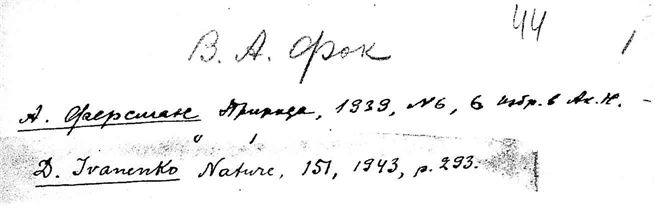 44
В. А. Фок
А. Ферсман Природа, 1939, №6, 6 избр. в Ак. Н. -
" '
D. Ivanenko Nature, 151, 1943, p. 293.